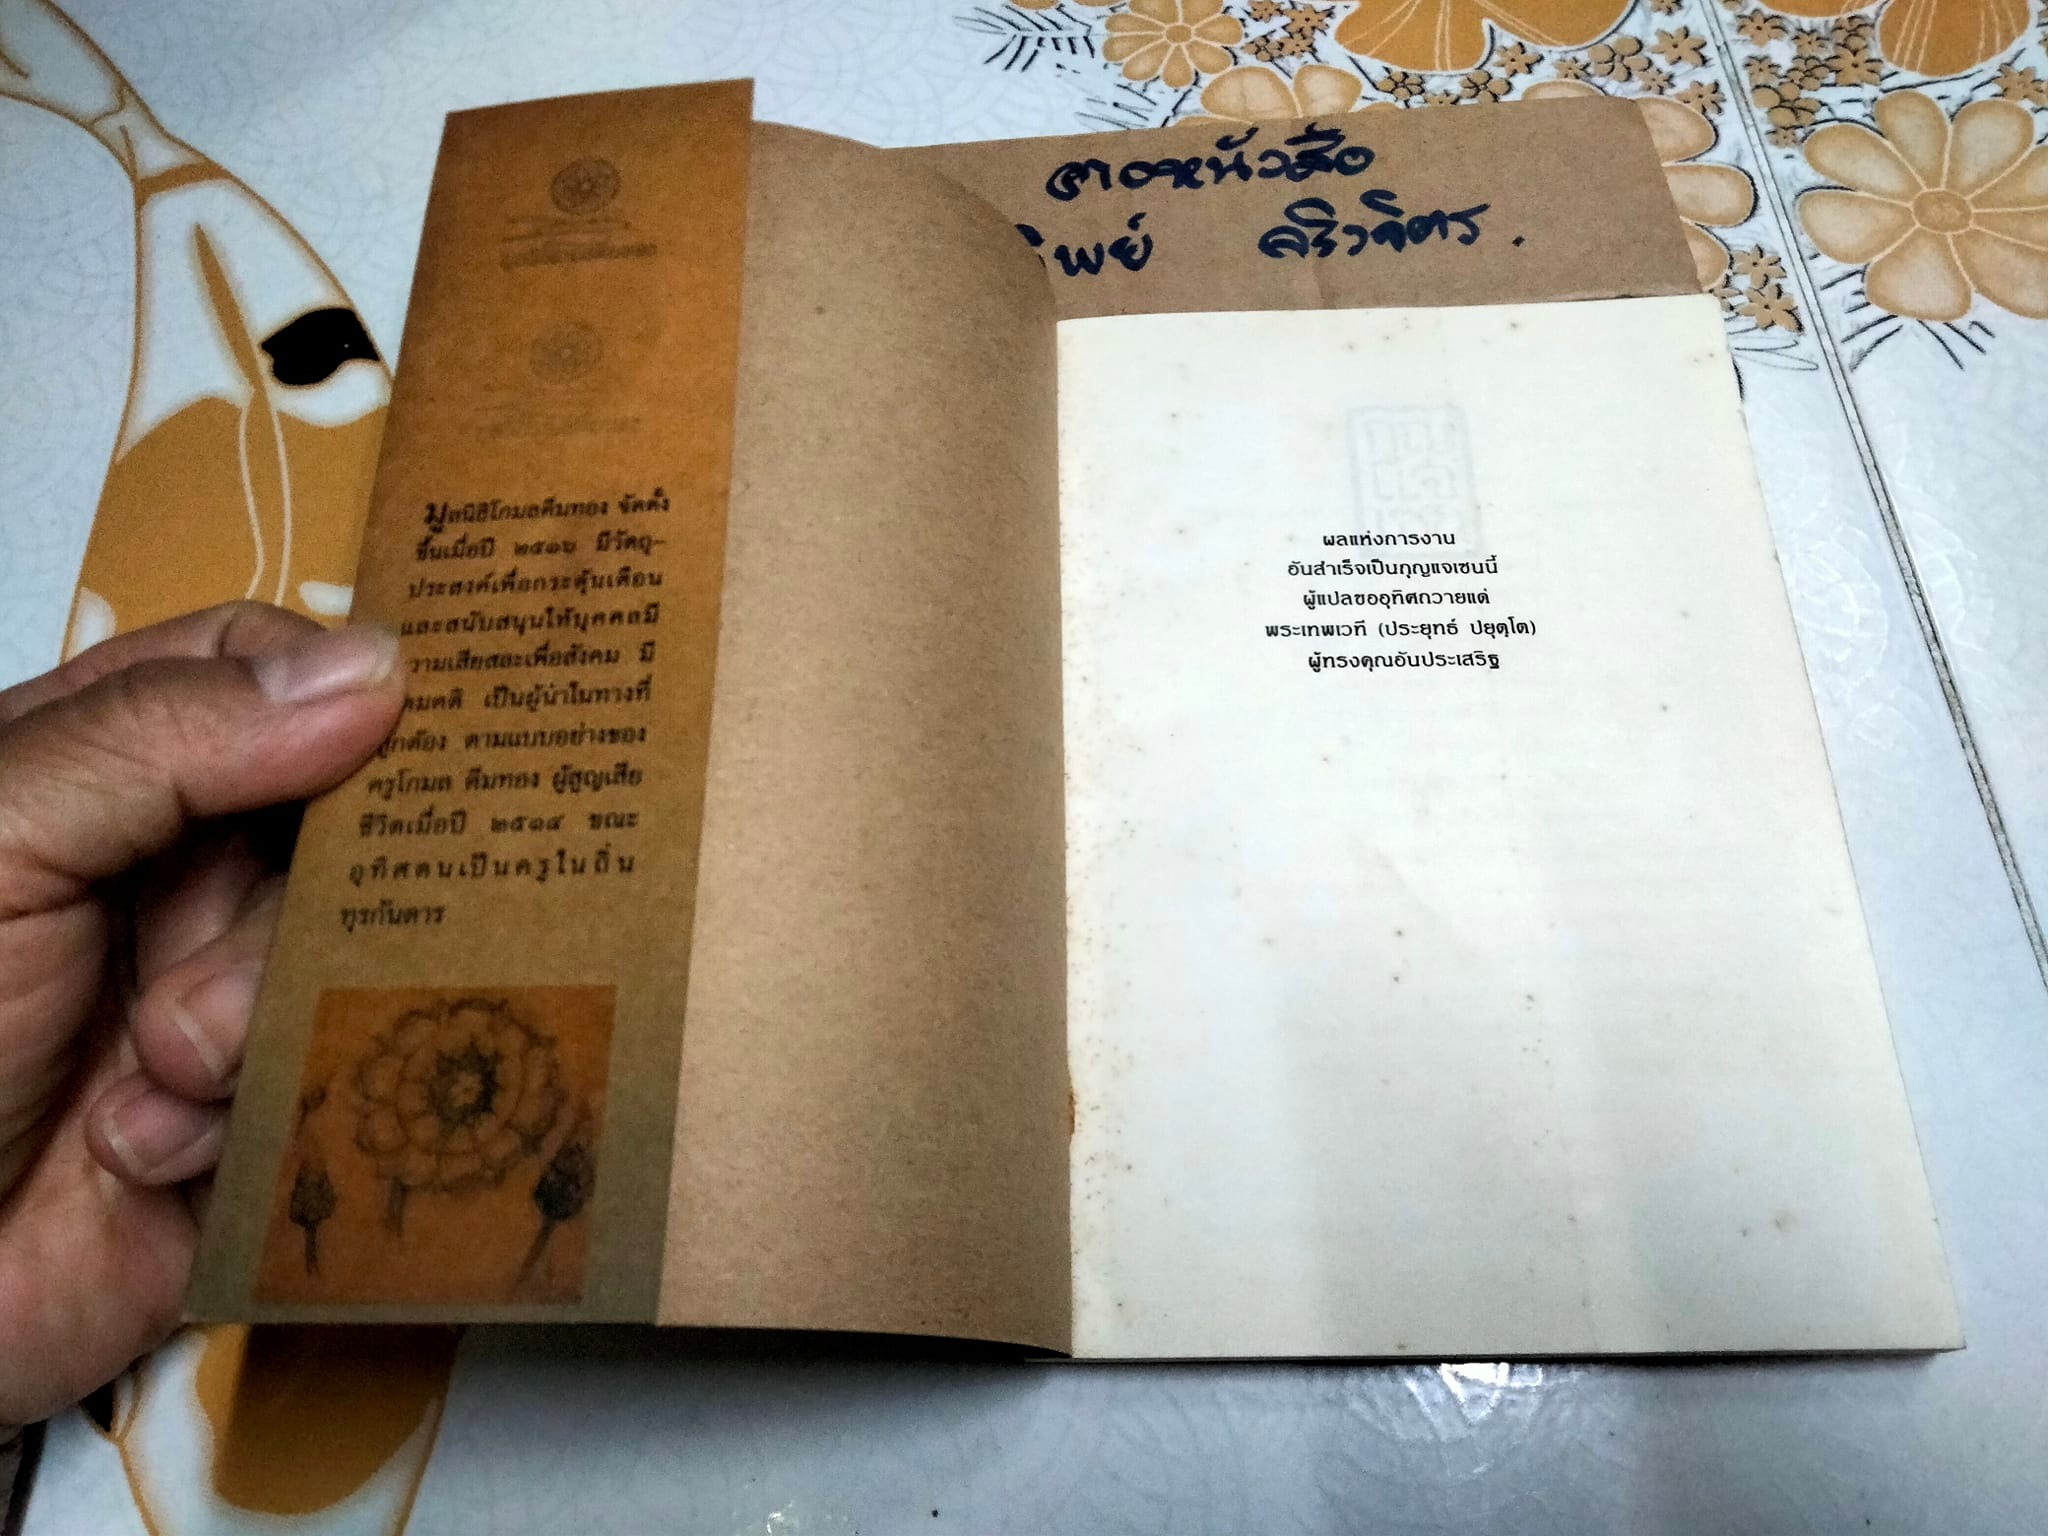 มูลนิธิโกมลคีมทอง จัดตั้ง
ขึ้นเมื่อปี ๒๕๑๖ มีวัตถุ-
ประสงค์เพื่อกระตุ้นเตือน
และสนับสนุนให้บุคคลมี
วามเสียสละเพื่อสังคม มี
คมคติ เป็นผู้นำในทางที่
ูกต้อง ตามแบบอย่างของ
ครูโกมล คีมทอง ผู้สูญเสีย
ชีวิตเมื่อปี ๒๕๑๔ ขณะ
อุทิศตนเป็นครูในถิ่น
ทุรกันดาร
ิพย์
ผลแห่งการงาน
อันสำเร็จเป็นกุญแจเซนนี้
ผู้แปลขออุทิศถวายแด่
พระเทพเวที (ประยุทธ์ ปยุตฺโต)
ผู้ทรงคุณอันประเสริฐ